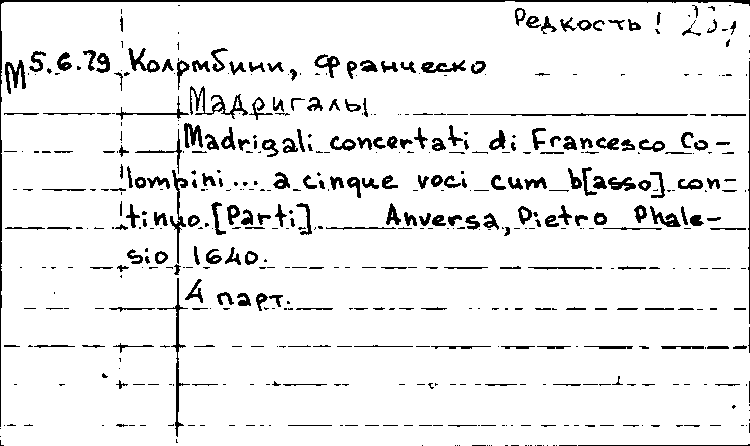 Редкость!
М 5.6.79 Коломбини, Франческо
Мадригалы
Madrigali concertati di Francesco Co-
lombini... a cinque voci cum b[asso] con-
tinuo. [Parti]. Anversa, Pietro Phale-
sio, 1640.
4 парт.